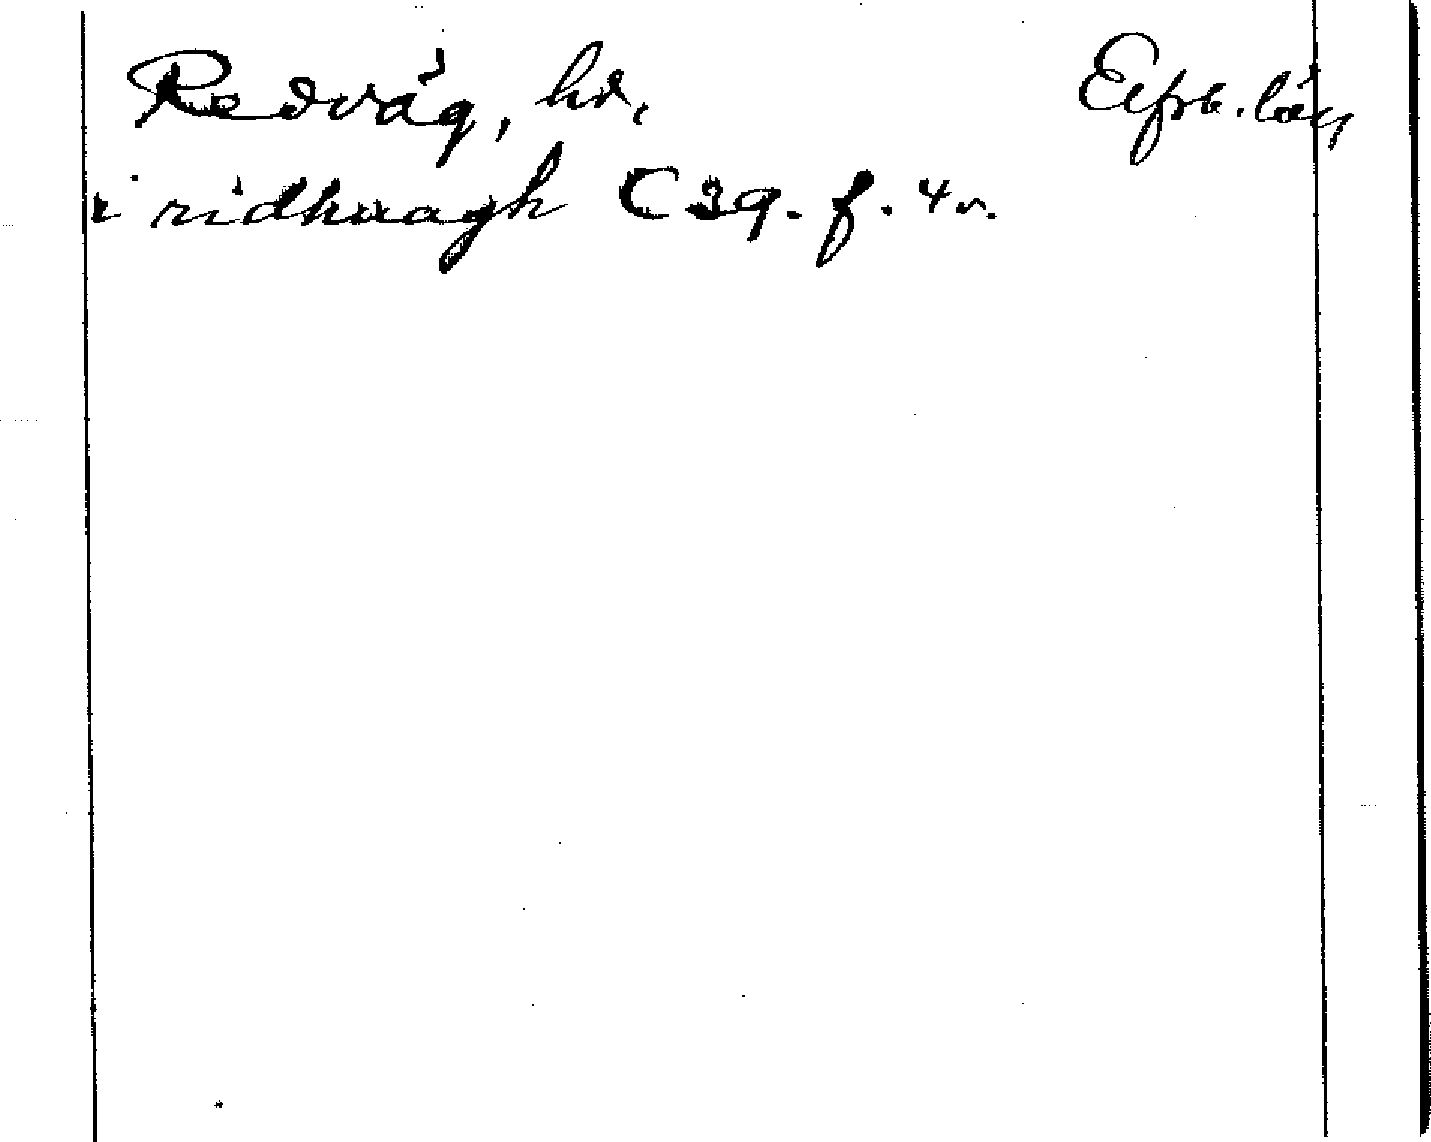 Redvåg, hd, Eifrb. låg
i ridhuagh C 39. f. 4 v.